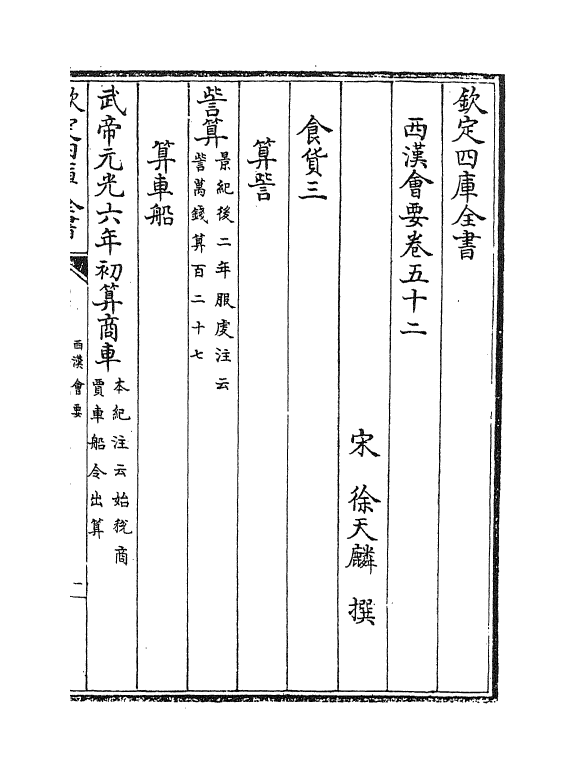 欽定四庫全書
西漢會要卷五十二
宋 徐天麟 撰
食貨三
算訾
訾算景紀後二年服虔注云
訾萬錢算百二十七
算車船
武帝元光六年初算商車本紀注云始稅商
賈車船令出算
欽定四庫全書
西漢會要